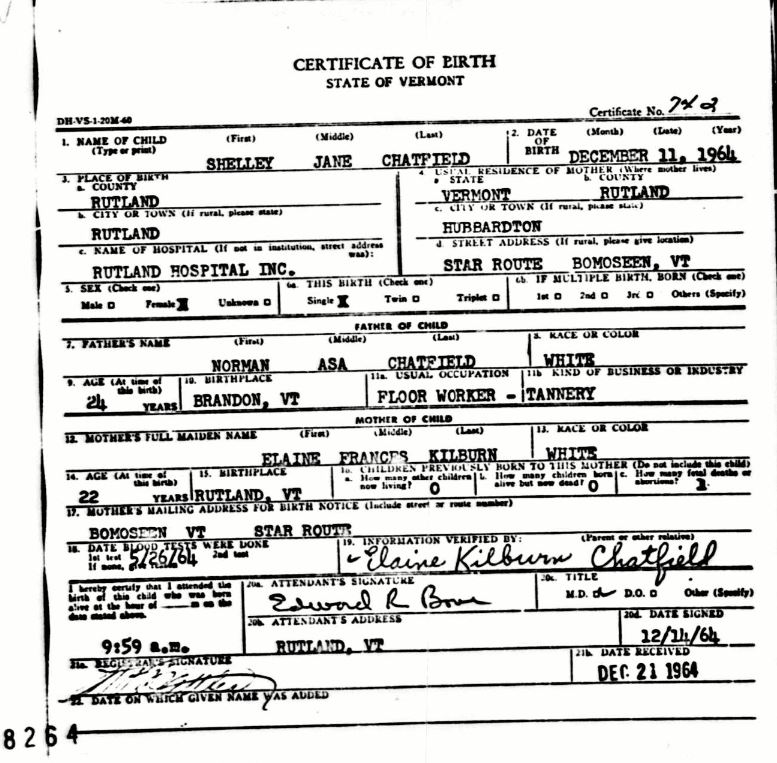 CERTIFICATE OF BIRTH
STATE OF VERMONT
DH-VS-1-20M-60
Certificate No. 742
1. NAME OF CHILD (First) (Middle) (Last) 2. DATE OF BIRTH (Month) (Date) (Year)
(Type or print) SHELLEY JANE CHATFIELD DECEMBER 11, 1964
3. PLACE OF BIRTH 4. USUAL RESIDENCE OF MOTHER (Where mother lives)
a. COUNTY a STATE b. COUNTY
RUTLAND VERMONT RUTLAND
b. CITY OR TOWN (If rural, please state) c. CITY OR TOWN (If rural, please state)
RUTLAND HUBBARDTON
c. NAME OF HOSPITAL (If not in institution, street address was): d. STREET ADDRESS (If rural, please give location)
RUTLAND HOSPITAL INC. STAR ROUTE BOMOSEEN, VT
5. SEX (Check one) 6a. THIS BIRTH (Check one) 6b. IF MULTIPLE BIRTH, BORN (Check one)
Male □ Female X Unknown □ Single X Twin □ Triplet □ 1st □ 2nd □ 3rd □ Others (Specify)
FATHER OF CHILD
7. FATHER'S NAME (First) (Middle) (Last) 8. RACE OR COLOR
NORMAN ASA CHATFIELD WHITE
9. AGE (At time of this birth) 10. BIRTHPLACE 11a. USUAL OCCUPATION 11b KIND OF BUSINESS OR INDUSTRY
24 YEARS BRANDON, VT FLOOR WORKER - TANNERY
MOTHER OF CHILD
12. MOTHER'S FULL MAIDEN NAME (First) (Middle) (Last) 13. RACE OR COLOR
ELAINE FRANCES KILBURN WHITE
14. AGE (At time of this birth) 15. BIRTHPLACE 16. CHILDREN PREVIOUSLY BORN TO THIS MOTHER (Do not include this child)
a. How many other children now living? 0 b. How many children born alive but now dead? 0 c. How many fetal deaths or abortions? 1
22 YEARS RUTLAND, VT
17. MOTHER'S MAILING ADDRESS FOR BIRTH NOTICE (Include street or route number)
BOMOSEEN VT STAR ROUTE
18. DATE BLOOD TESTS WERE DONE 19. INFORMATION VERIFIED BY: (Parent or other relative)
1st test 5/26/64 2nd test Elaine Kilburn Chatfield
If none, give
I hereby certify that I attended the birth of this child who was born alive at the hour of m on the date stated above. 20a. ATTENDANT'S SIGNATURE 20c. TITLE
Edward R M.D. D.O. □ Other (Specify)
20b. ATTENDANT'S ADDRESS 20d. DATE SIGNED
9:59 a.m. RUTLAND, VT 12/14/64
21a. REGISTRAR'S SIGNATURE 21b. DATE RECEIVED
DEC 21 1964
22. DATE ON WHICH GIVEN NAME WAS ADDED
8264